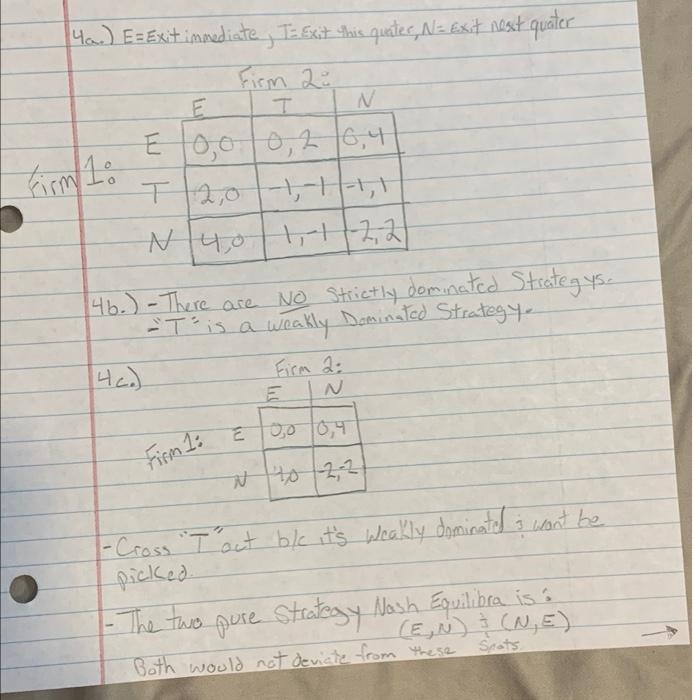 4a.) E=Exit immediate, T=Exit this quater, N=Exit next quater
Firm 2:
E T N
E 0,0 0,2 0,4
Firm 1: T 2,0 -1,-1 -1,1
N 4,0 1,-1 -2,-2
4b.) - There are NO Strictly dominated Strategys.
- "T" is a weakly Dominated Strategy.
4c.) Firm 2:
E N
Firm 1: E 0,0 0,4
N 4,0 -2,-2
- Cross "T" out b/c it's weakly dominated & wont be
picked.
- The two pure Strategy Nash Equilibra is:
(E,N) & (N,E)
Both would not deviate from these Spots.